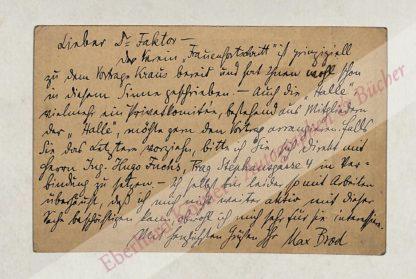 Lieber Dr Faktor –
der Verein „Frauenfortschritt“ ist prinzipiell
zu dem Vortrage Kraus bereit und hat Ihnen wohl schon
in diesem Sinne geschrieben. – Auch die „Halle“
vielmehr ein Privatkomitée, bestehend aus Mitgliedern
der „Halle“, möchte gern den Vortrag arrangieren. Falls
Sie das Letztere vorziehn, bitte ich Sie, sich direkt mit
Herrn Ing. Hugo Fuchs, Prag Stephansgasse 4 in Ver-
bindung zu setzen. – Ich selbst bin leider so mit Arbeiten
überhäuft, daß ich mich nicht weiter aktiv mit dieser
Sache beschäftigen kann, obwohl ich mich sehr für sie interessiere.
Mit herzlichsten Grüßen Ihr Max Brod
Eberhard Köstler Autographen & Bücher